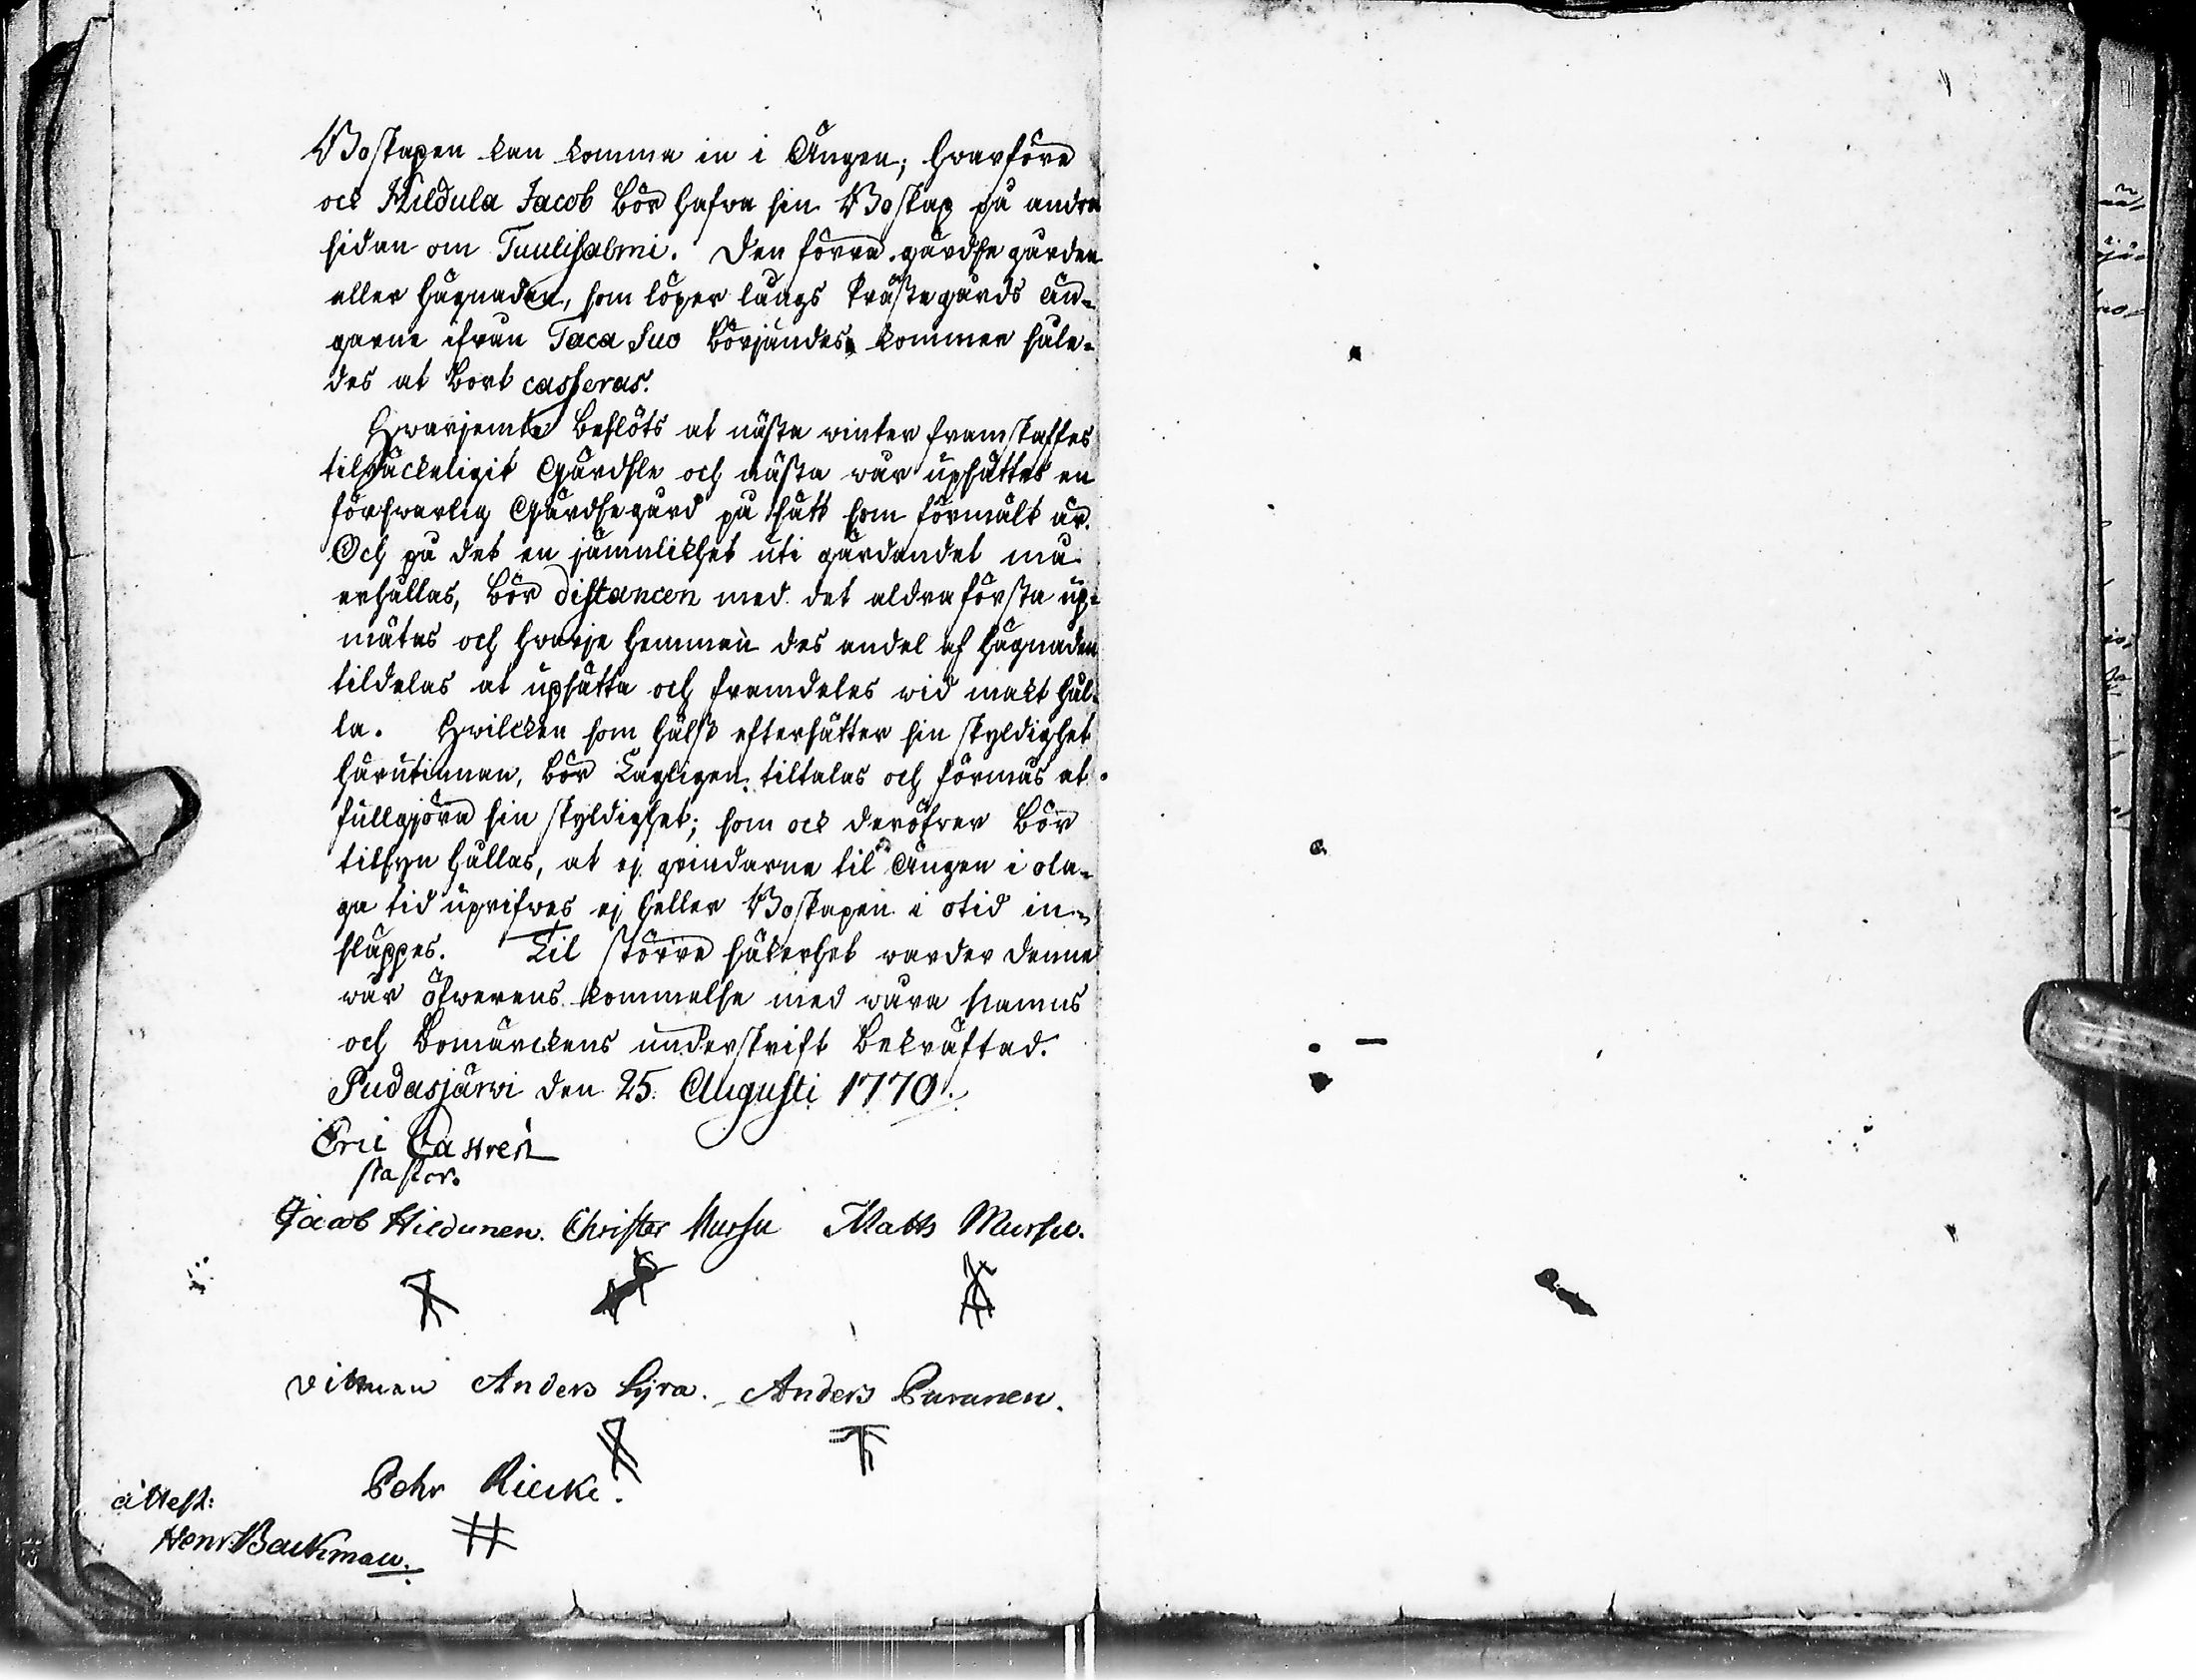 Boskapen kan komma in i Ängen; hvarföre
ock Hildula Jacob bör hafva sin Boskap på andra
sidan om Tuulisalmi. Den förra gärdsegården
eller hägnaden, som löper längs Prästegårds än-
garne ifrån Taca Suo börjandes kommer såle-
des at bort casseras.
Hwarjemte beslöts at nästa winter framskaffes
tilräckeligit Gärdsle och nästa wår upsättes en
förswarlig Gärdsegård på sätt som förmält är.
Och på det en jämnlikhet uti gärdandet må
erhållas, bör distancen med det aldraförsta up-
mätas och hvarje hemman des andel af hägnaden
tildelas at upsätta och framdeles wid makt hål-
la. Hwilcken som hälst eftersätter sin skyldighet
härutinnan, bör Lagligen tiltalas och förmås at
fullgjöra sin skyldighet; som ock deröfver bör
tilsyn hållas, at ej grindarne til Ängen i ola-
ga tid uprifwes ej heller Boskapen i otid in-
släppes. Til större säkerhet warder denne
wår öfwerenskommelse med wåra Namns
och Bomärckens underskrift bekräftad.
Pudasjärwi den 25. Augusti 1770.
Eric Castrén
Pastor.
Jacob Hildunen. Christer Mursu Matts Mursu.
vitnen Anders Lyra. Anders Puranen.
Pehr Riecki.
attest:
Henr. Backman.